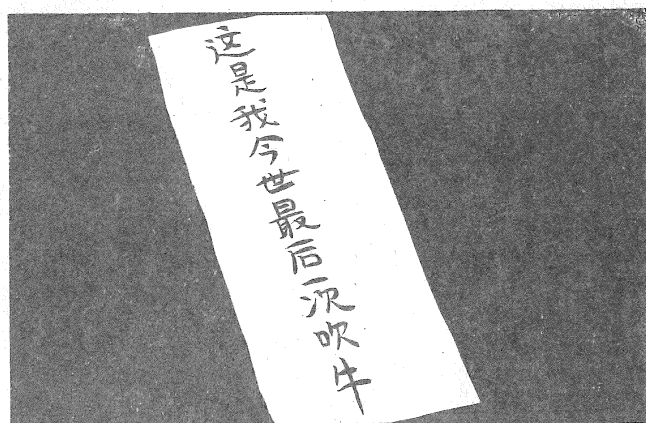 这是我今世最后一次吹牛